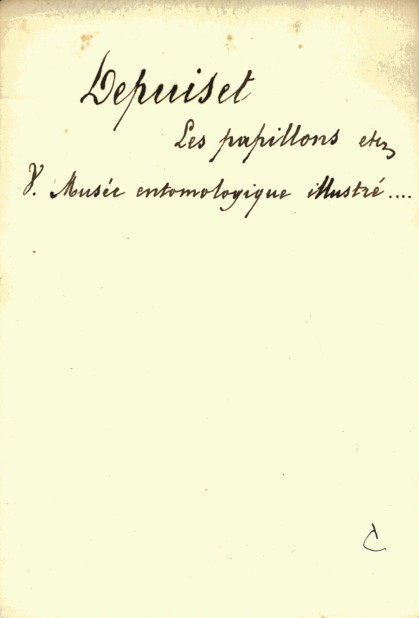 Depuiset
Les papillons etc
V. Musée entomologique illustré....